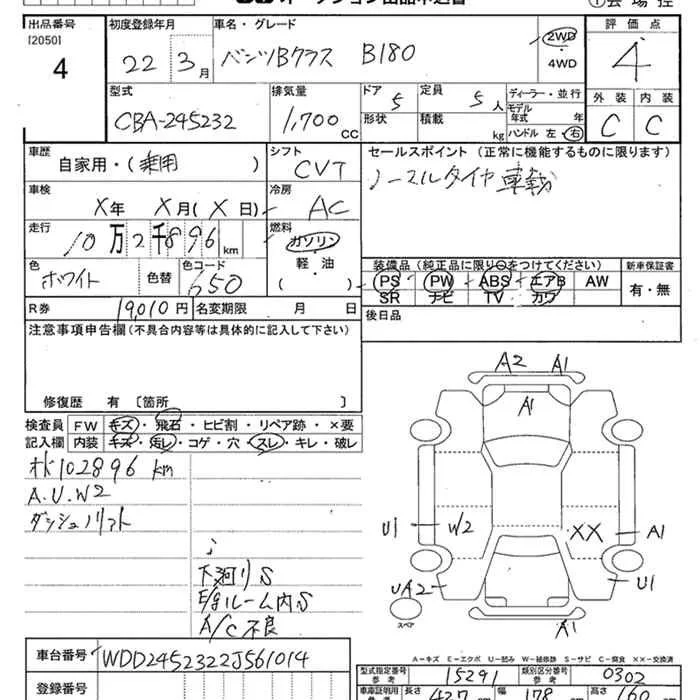 オークション出品申込書 ①会場控
出品番号 初度登録年月 車名・グレード 評価点
[2050] 4 22 3月 ベンツBクラス B180 2WD ・4WD 4
型式 排気量 ドア 定員 ディーラー・並行 外装 内装
CBA-245232 1,700cc 5 5人 モデル年式 年 C C
形状 積載 kg ハンドル 左・右
車歴 シフト セールスポイント(正常に機能するものに限ります)
自家用・(乗用 ) CVT ノーマルタイヤ車載
車検 冷房
X年 X月(X日) AC
走行 燃料
10万2千896km ガソリン
軽・油
( )
色 色替 色コード 装備品(純正品に限り○をつけてください) 新車保証書
ホワイト 650 PS PW ABS エアB AW 有・無
SR ナビ TV カワ
R券 19,010円 名変期限 月 日 後日品
注意事項申告欄(不具合内容等は具体的に記入して下さい)
修復歴 有〔箇所 〕
検査員 FW キズ・飛石・ヒビ割・リペア跡・×要
記入欄 内装 キズ・汚レ・コゲ・穴・スレ・キレ・破レ
オド102896km
A.U.W2
ダッシュノリフト
下廻りS
E/gルーム内S
A/C不良
A2 A1
A1
U1 W2 XX A1
UA2 U1
スペア A1
A-キズ E-エクボ U-凹み W-補修跡 S-サビ C-腐食 ××-交換済
車台番号 WDD2452322J561014
登録番号
型式指定番号 参考 15291 類別区分番号 参考 0302
車庫証明用 長さ 427 幅 178 高さ 160